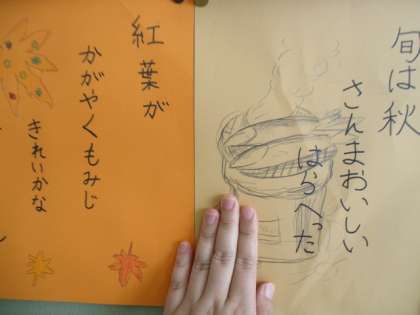 旬は秋
さんまおいしい
はらへった
紅葉が
かがやくもみじ
きれいかな